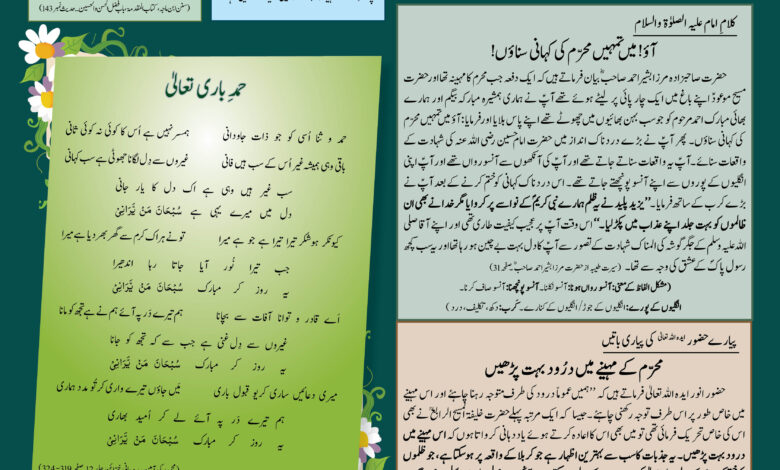 (سنن ابن ماجہ، کتاب المقدمۃ، باب فضل الحسن والحسین۔ حدیث نمبر 143)
حمدِ باری تعالیٰ
حمد و ثنا اُسی کو جو ذات جاودانی ہمسر نہیں ہے اُس کا کوئی نہ کوئی ثانی
باقی وہی ہمیشہ غیر اُس کے سب ہیں فانی غیروں سے دِل لگانا جھوٹی ہے سب کہانی
سب غیر ہیں وہی ہے اک دل کا یار جانی
دل میں میرے یہی ہے سُبْحَانَ مَنْ یَّرَانِیْ
کیونکر ہو شکر تیرا تیرا ہے جو ہے میرا تو نے ہر اک کرم سے گھر بھر دیا ہے میرا
جب تیرا نُور آیا جاتا رہا اندھیرا
یہ روز کر مبارک سُبْحَانَ مَنْ یَّرَانِیْ
اے قادر و توانا آفات سے بچانا ہم تیرے در پہ آئے ہم نے ہے تجھ کو مانا
غیروں سے دِل غنی ہے جب سے کہ تجھ کو جانا
یہ روز کر مبارک سُبْحَانَ مَنْ یَّرَانِیْ
میری دعائیں ساری کریو قبول باری میں جاؤں تیرے واری کر تُو مدد ہماری
ہم تیرے در پہ آئے لے کر اُمید بھاری
یہ روز کر مبارک سُبْحَانَ مَنْ یَّرَانِیْ
کلامِ امام علیہ الصلوٰۃ والسلام
آؤ! میں تمہیں محرّم کی کہانی سناؤں!
حضرت صاحبزادہ مرزا بشیر احمد صاحبؓ بیان فرماتے ہیں کہ ایک دفعہ جب محرّم کا مہینہ تھا اور حضرت
مسیح موعودؑ اپنے باغ میں ایک چارپائی پر لیٹے ہوئے تھے آپؑ نے ہماری ہمشیرہ مبارکہ بیگم اور ہمارے
بھائی مبارک احمد مرحوم کو جو سب بہن بھائیوں میں چھوٹے تھے اپنے پاس بلایا اور فرمایا: آؤ میں تمہیں محرّم
کی کہانی سناؤں۔ پھر آپؑ نے بڑے دردناک انداز میں حضرت امام حسین رضی اللہ عنہ کی شہادت کے
واقعات سنائے۔ آپؑ یہ واقعات سناتے جاتے تھے اور آپؑ کی آنکھوں سے آنسو رواں تھے اور آپؑ اپنی
انگلیوں کے پوروں سے اپنے آنسو پونچھتے جاتے تھے۔ اس دردناک کہانی کو ختم کرنے کے بعد آپؑ نے
بڑے کرب کے ساتھ فرمایا۔ ”یزید پلید نے یہ ظلم ہمارے نبی کریمؐ کے نواسے پر کروایا مگر خدا نے بھی ان
ظالموں کو بہت جلد اپنے عذاب میں پکڑ لیا۔“ اس وقت آپؑ پر عجیب کیفیت طاری تھی اور اپنے آقا صلی
اللہ علیہ وسلم کے جگر گوشہ کی المناک شہادت کے تصور سے آپؑ کا دل بہت بے چین ہو رہا تھا اور یہ سب کچھ
رسول پاکؐ کے عشق کی وجہ سے تھا۔ (سیرت طیبہ از حضرت مرزا بشیر احمد صاحبؓ صفحہ 31)
(مشکل الفاظ کے معنی: آنسو رواں ہونا: آنسو نکلنا۔ آنسو پونچھنا: آنسو صاف کرنا۔
انگلیوں کے پورے: انگلیوں کے جوڑ/ انگلیوں کے کنارے۔ کرب: دکھ، تکلیف، درد)
پیارے حضور ایدہ اللہ تعالیٰ کی پیاری باتیں
محرّم کے مہینے میں درُود بہت پڑھیں
حضور انور ایدہ اللہ تعالیٰ فرماتے ہیں کہ ”ہمیں عموماً درود کی طرف متوجہ رہنا چاہئے اور اس مہینے
میں خاص طور پر اس طرف توجہ رکھنی چاہئے۔ جیسا کہ ایک مرتبہ پہلے حضرت خلیفۃ المسیح الرابعؒ نے بھی
اس کی خاص تحریک فرمائی تھی تو میں بھی اس کا اعادہ کرتے ہوئے یاددہانی کرواتا ہوں کہ اس مہینے میں
درود بہت پڑھیں۔ یہ جذبات کا سب سے بہترین اظہار ہے جو کربلا کے واقعہ پر ہو سکتا ہے، جو ظلموں